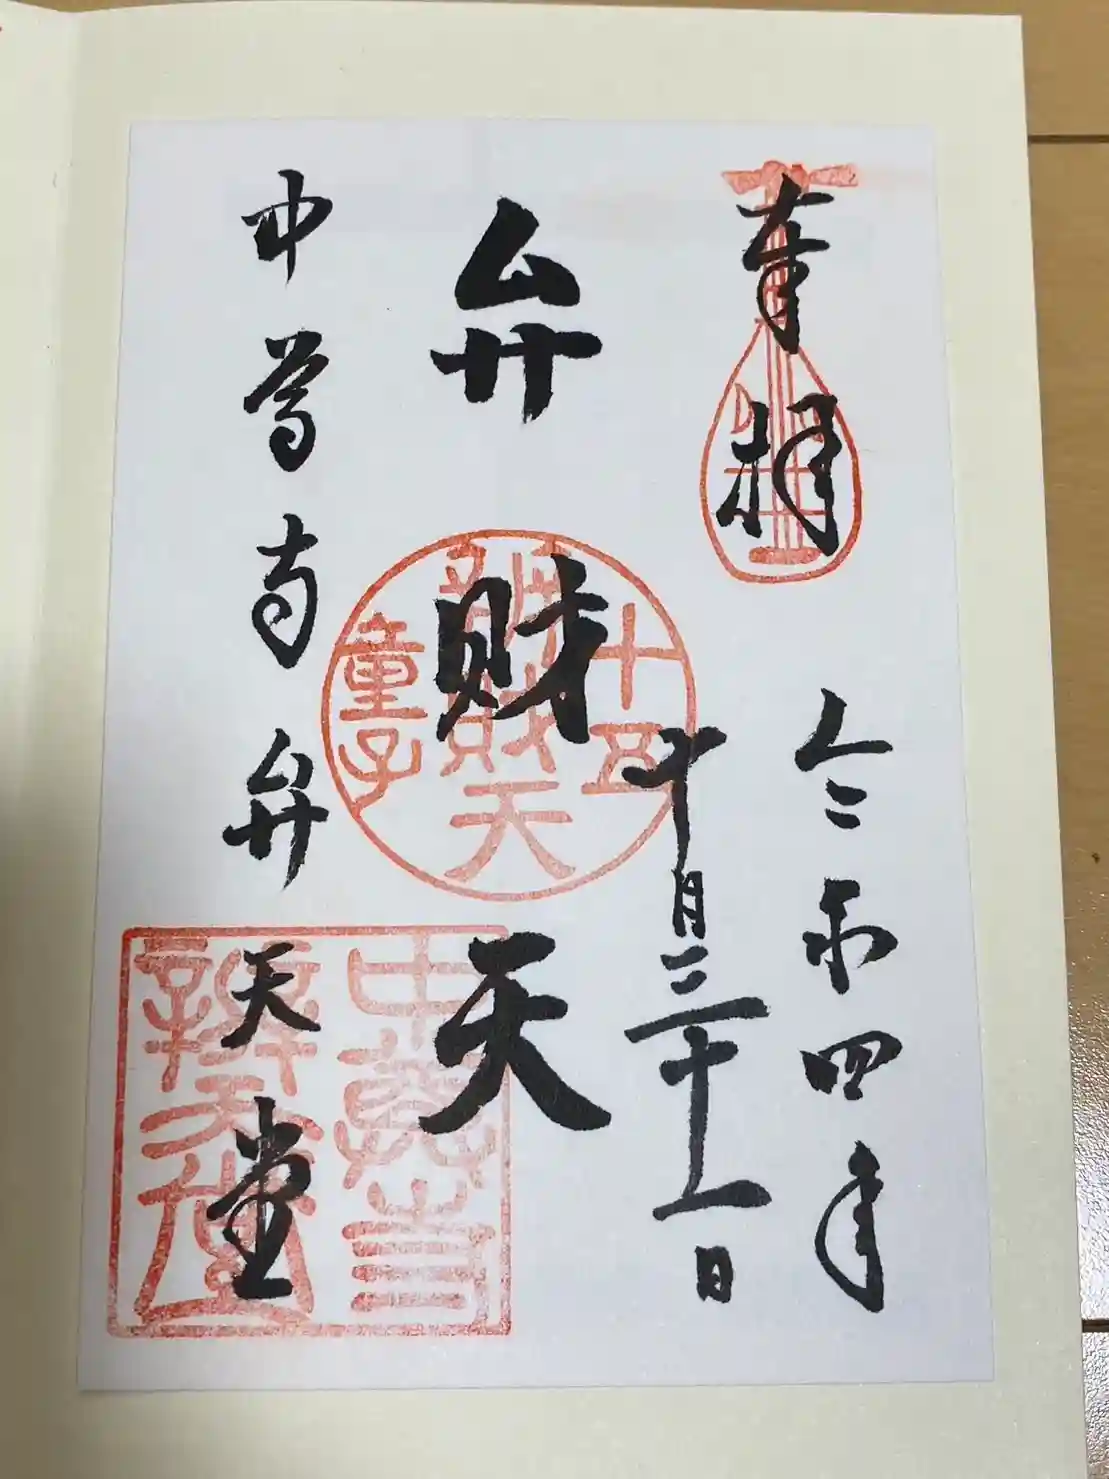 奉拝
令和四年
十月三十一日
弁財天
十五
辨財天
童子
中尊寺弁天堂
中尊寺
辨天堂